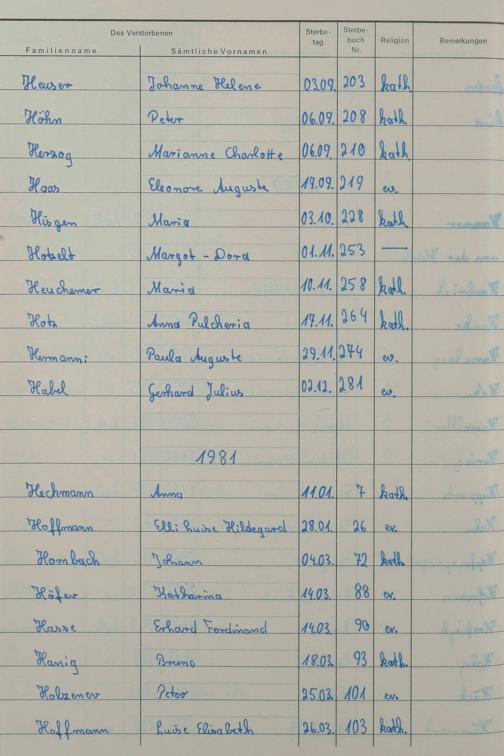 Des Verstorbenen Sterbe- Sterbe- Religion Bemerkungen
tag buch
Familienname Sämtliche Vornamen Nr.
Heuser Johanne Helene 03.09. 203 kath
Höhn Peter 06.09. 208 kath
Herzog Marianne Charlotte 06.09. 210 kath
Haas Eleonore Auguste 17.09. 219 ev.
Hösgen Maria 03.10. 228 kath
Hotzelt Margot - Dora 01.11. 253 —
Heuchemer Maria 10.11. 258 kath.
Hotz Anna Pulcheria 17.11. 264 kath.
Hermanni Paula Auguste 29.11. 274 ev.
Habel Gerhard Julius 02.12. 281 ev.
1981
Heckmann Anna 11.01. 7 kath.
Hoffmann Elli Luise Hildegard 28.01. 26 ev.
Hombach Johann 04.03. 72 kath
Höfer Katharina 14.03. 88 ev.
Hasse Erhard Ferdinand 14.03. 90 ev.
Hanig Bruno 18.03. 93 kath.
Holzener Peter 25.03. 101 ev.
Hoffmann Luise Elisabeth 26.03. 103 kath.